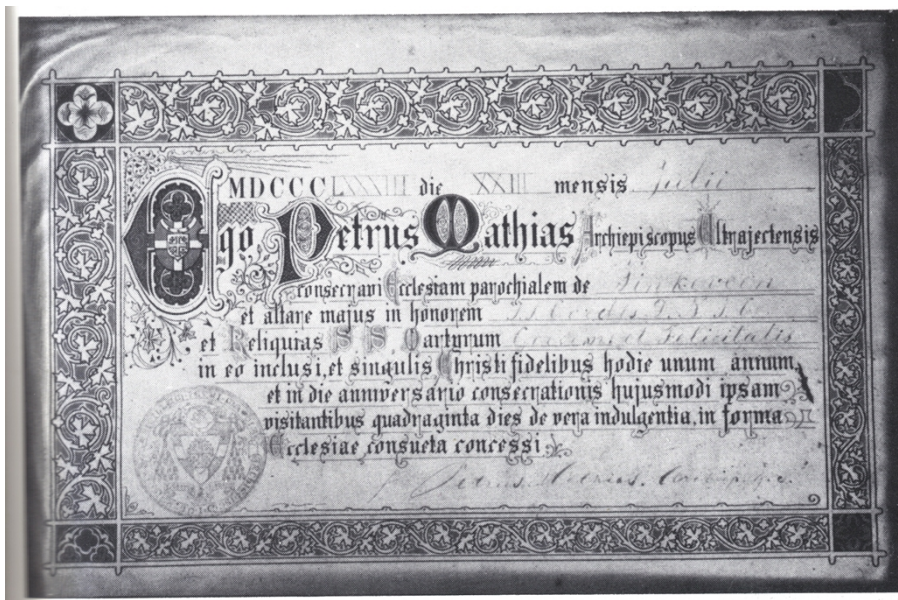 MDCCCLXXXIII die XXIII mensis Julii
Ego Petrus Mathias Archiepiscopus Ultrajectensis
consecravi Ecclesiam parochialem de Vinkeveen
et altare majus in honorem
et Reliquias S S. Martyrum et Felicitatis
in eo inclusi, et singulis Christi fidelibus hodie unum annum
et in die anniversario consecrationis hujusmodi ipsam
visitantibus quadraginta dies de vera indulgentia, in forma
Ecclesiae consueta concessi.
Petrus